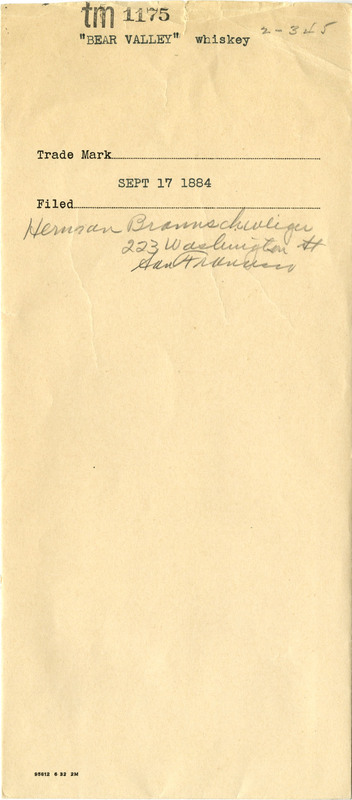 tm 1175
2-345
"BEAR VALLEY" whiskey
Trade Mark
SEPT 17 1884
Filed
Herman Braunschweiger
223 Washington St
San Francisco
95612 6 32 2M